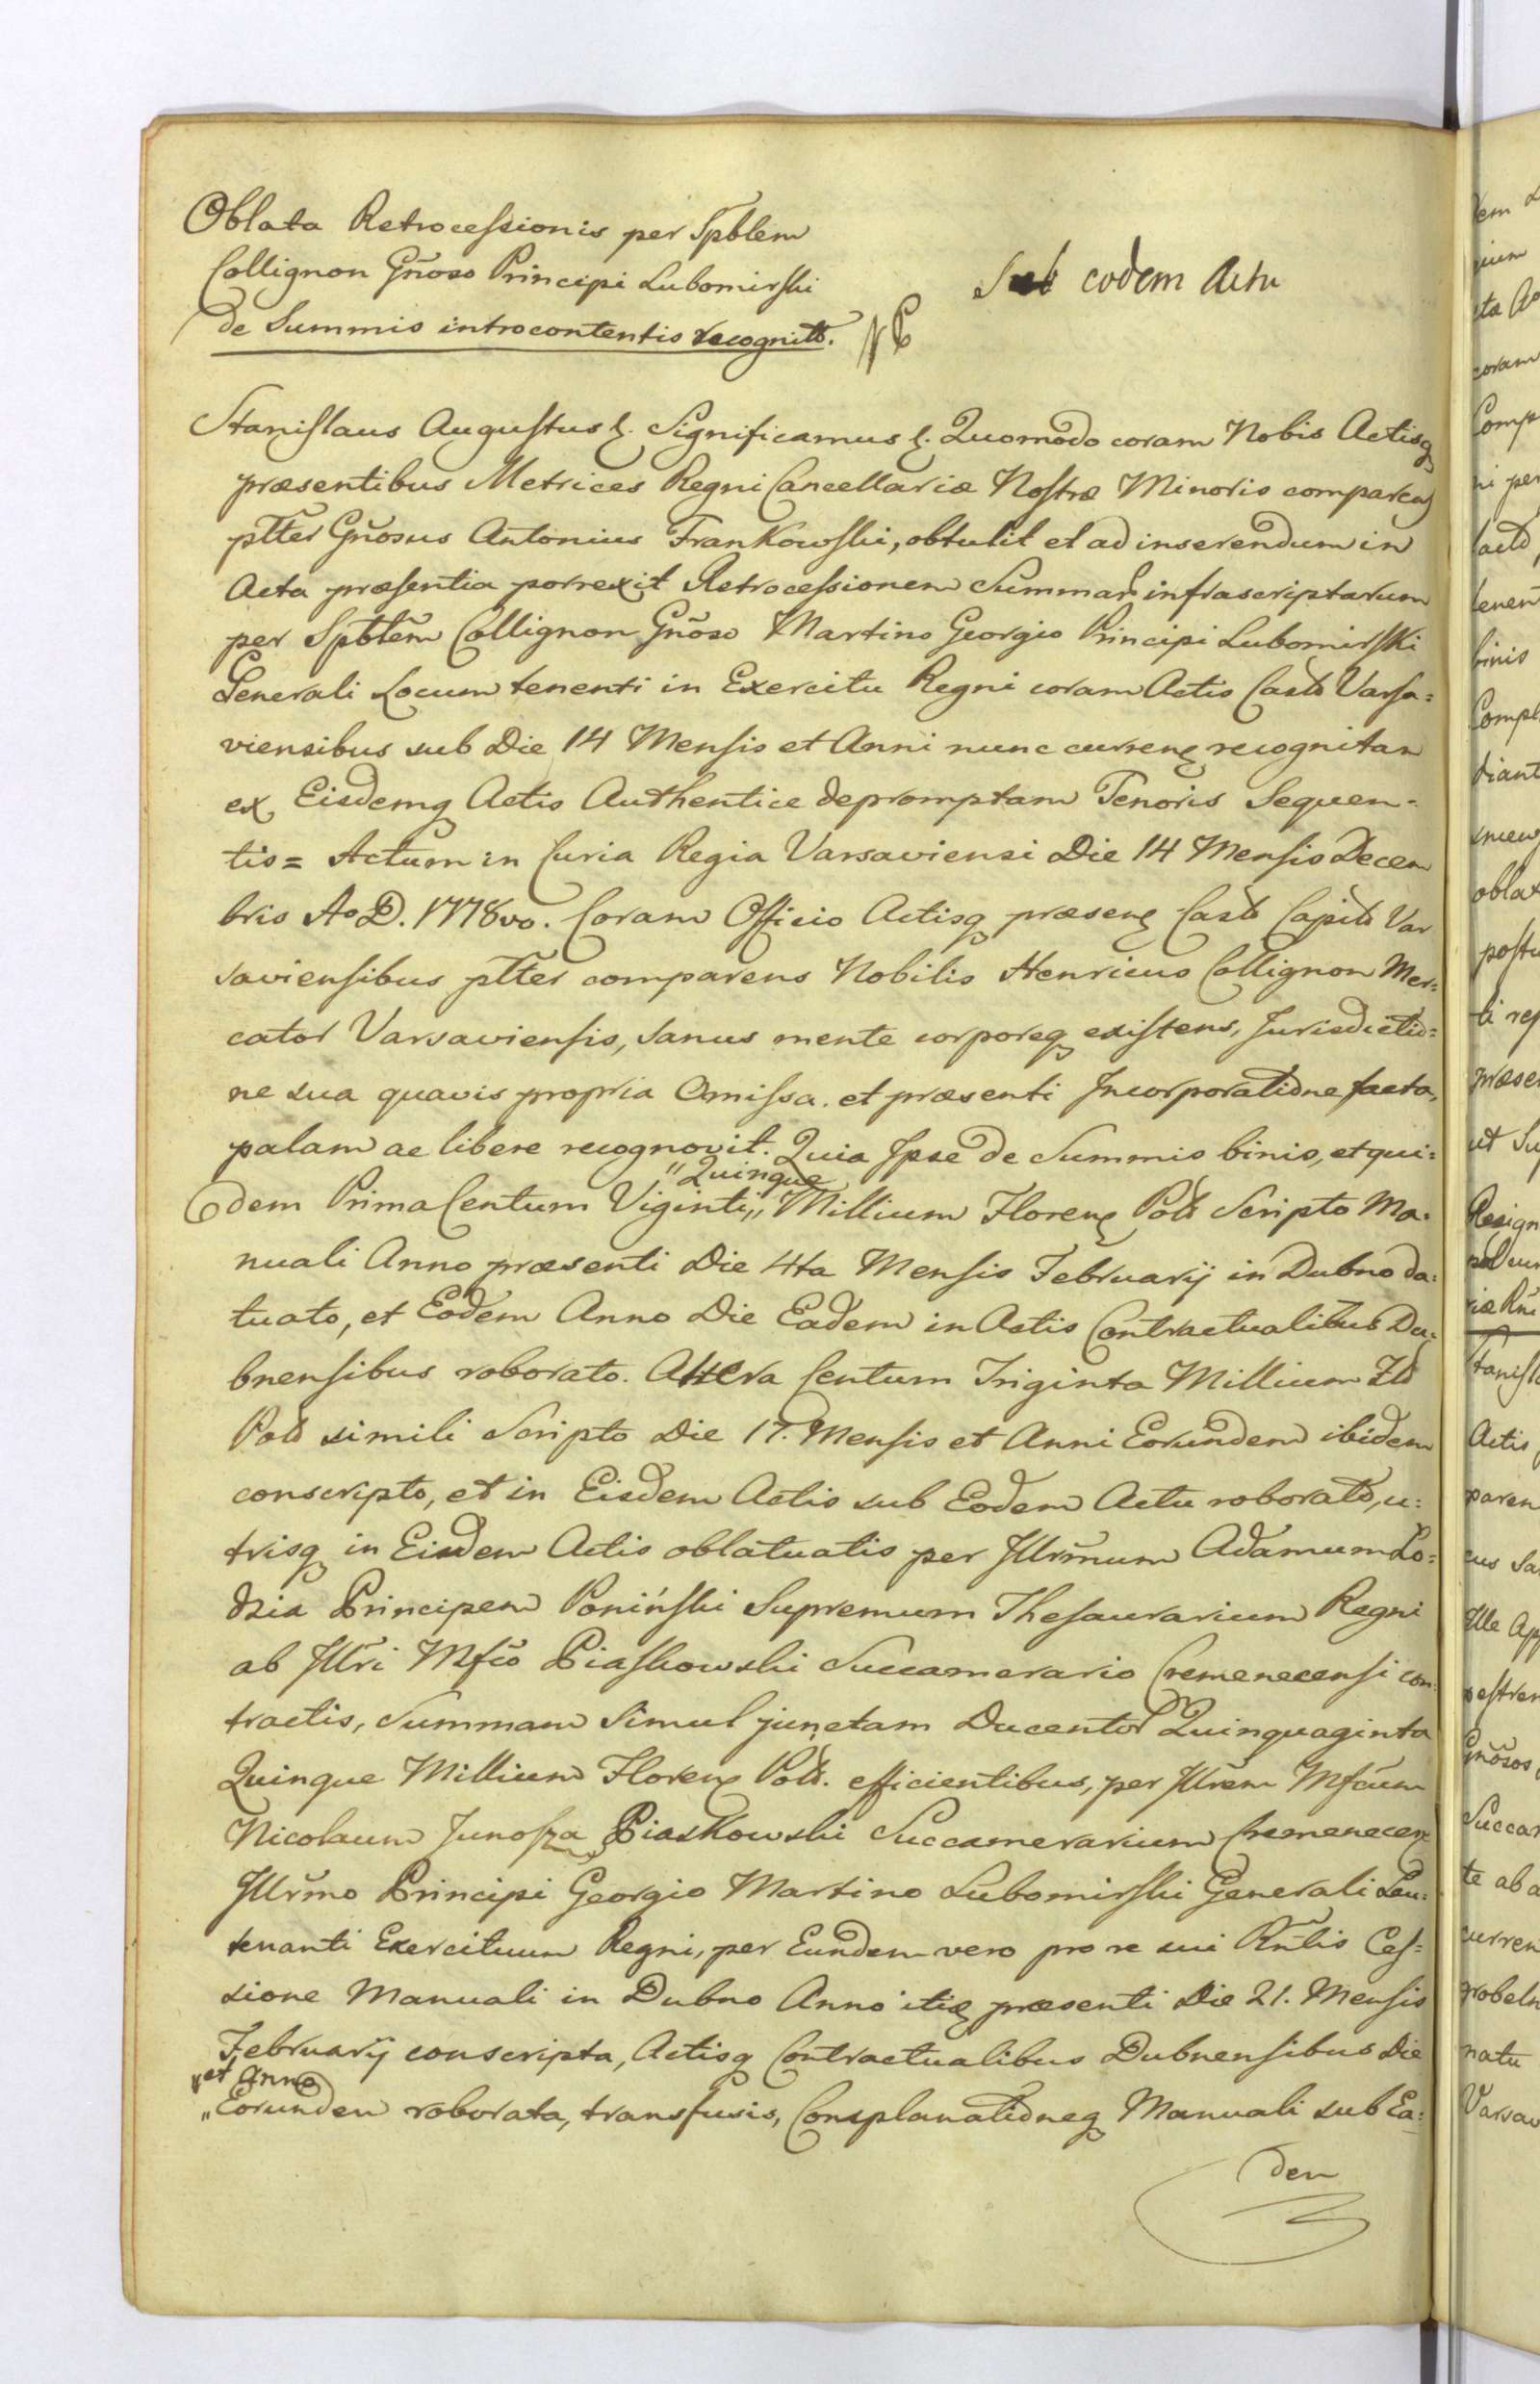 Oblata Retrocessionis per Spblem
Collignon Gñoso Principi Lubomirski
de Summis introcontentis recognitt.
Sub eodem Actu
Stanislaus Augustus &. Significamus &. Quomodo coram Nobis Actisq
præsentibus Metrices Regni Cancellariæ Nostræ Minoris comparens
ptter Gñosus Antonius Frankowski, obtulit et ad inserendum in
Acta præsentia porrexit Retrocessionem Summar infrascriptarum
per Spblem Collignon Gñoso Martino Georgio Principi Lubomirski
Generali Locum tenenti in Exercitu Regni coram Actis Castr Varsa=
viensibus sub Die 14 Mensis et Anni nunc curren recognitam
ex Eisdemq Actis Authentice depromptam Tenoris Sequen=
tis = Actum in Curia Regia Varsaviensi Die 14 Mensis Decem
bris Ao D. 1778vo. Coram Officio Actisq præsen Castr Capit Var
saviensibus ptter comparens Nobilis Henricus Collignon Mer=
cator Varsaviensis, sanus mente corporeq existens, Jurisdictio=
ne sua quavis propria Omissa. et præsenti Incorporatione facta,
palam ac libere recognovit. Quia Ipse de Summis binis, et qui=
"Quinque
dem Prima Centum Viginti,, Millium Floren Pols Scripto Ma=
nuali Anno præsenti Die 4ta Mensis Februarij in Dubno da=
tuato, et Eodem Anno Die Eadem in Actis Contractualibus Du=
bnensibus roborato. Altera Centum Triginta Millium Fls
Pols simili Scripto Die 17. Mensis et Anni Eorundem ibidem
conscripto, et in Eisdem Actis sub Eodem Actu roborato, u=
trisq in Eisdem Actis oblatuatis per Jllrmum Adamum Lo=
dzia Principem Poniński Supremum Thesaurarium Regni
ab Jllri Mfco Piaskowski Succamerario Cremenecensi con
tractis, Summam Simul junctam Ducentor Quinquaginta
Quinque Millium Floren Pols. efficientibus, per Jllrem Mfcum
Nicolaum Junosza Piaskowski Succamerarium Cremenecen
Jllrmo Principi Georgio Martino Lubomirski Generali Leu=
tenanti Exercituum Regni, per Eundem vero pro re sui Rñtis Ces=
sione Manuali in Dubno Anno itid præsenti Die 21. Mensis
Februarij conscripta, Actisq Contractualibus Dubnensibus Die
et Anno
"Eorundem roborata, transfusis, Complanationeq Manuali sub Ea=
dem